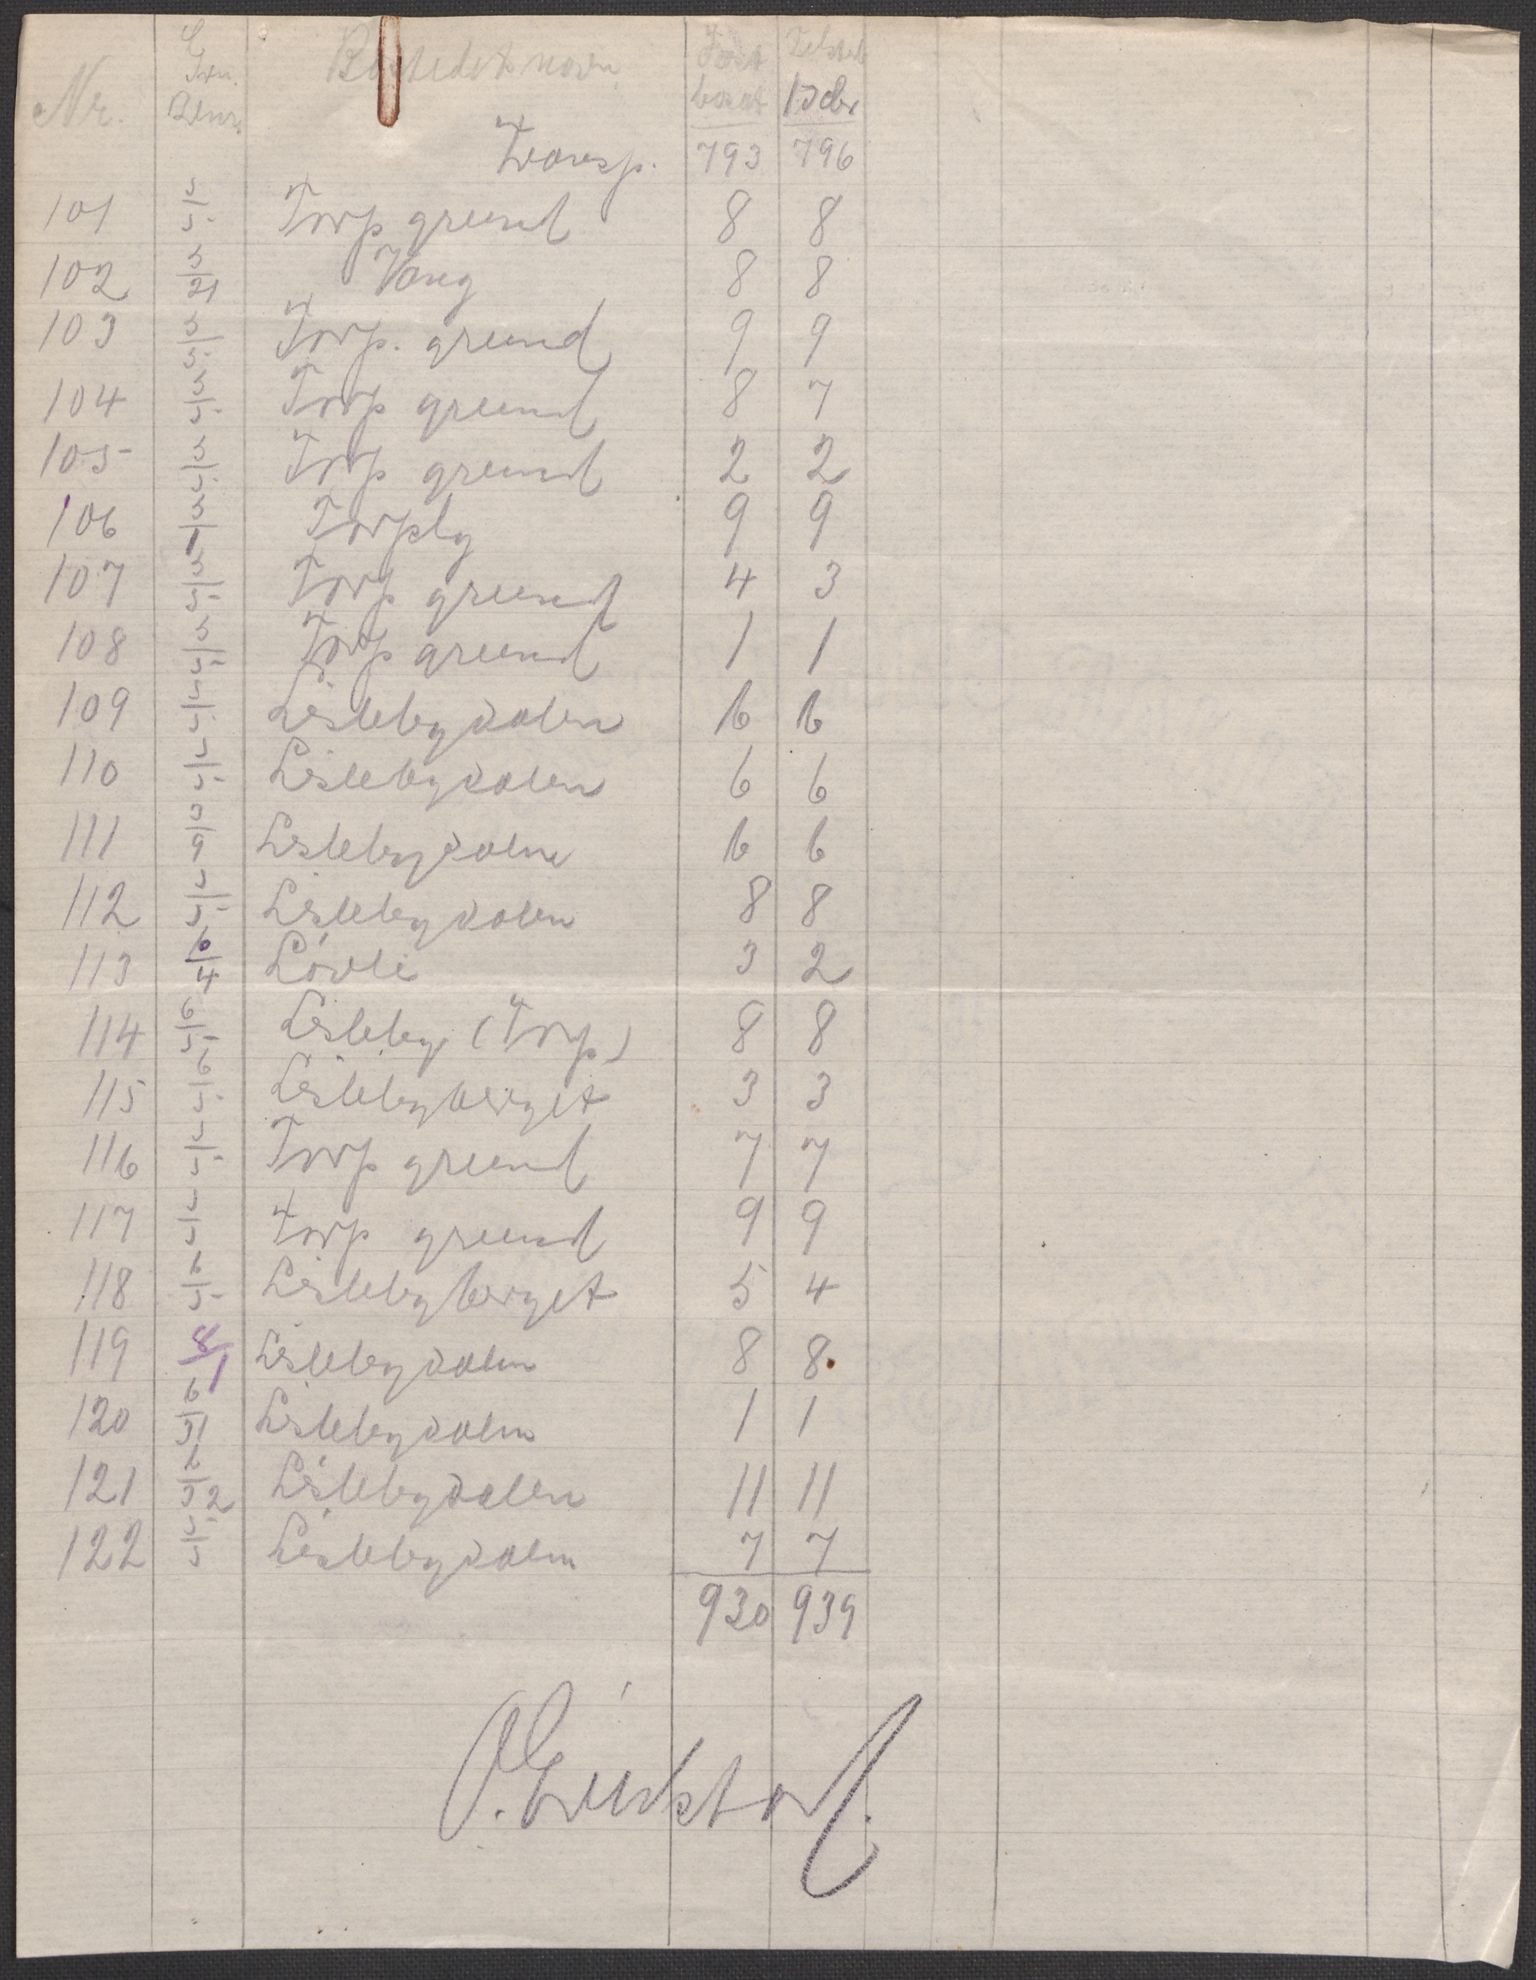 Nr. Gnr. Bnr. Bostedets navn Fast bosat Tilsted 1 Dcbr
Transp. 793 796
101 5/5 Torp grund 8 8
102 5/21 Vang 8 8
103 5/5 Torp. grund 9 9
104 5/5 Torp grund 8 7
105 5/5 Torp grund 2 2
106 5/1 Torply 9 9
107 5/5 Torp grund 4 3
108 5/5 Torp grund 1 1
109 5/5 Lislebydalen 6 6
110 5/5 Lislebydalen 6 6
111 3/9 Lislebydalen 6 6
112 5/5 Lislebydalen 8 8
113 6/4 Lövli 3 2
114 6/5 Lisleby (Torp) 8 8
115 6/5 Lislebyberget 3 3
116 5/5 Torp grund 7 7
117 5/5 Torp grund 9 9
118 6/5 Lislebyberget 5 4
119 8/1 Lislebydalen 8 8
120 6/31 Lislebydalen 1 1
121 6/32 Lislebydalen 11 11
122 5/5 Lislebydalen 7 7
930 939